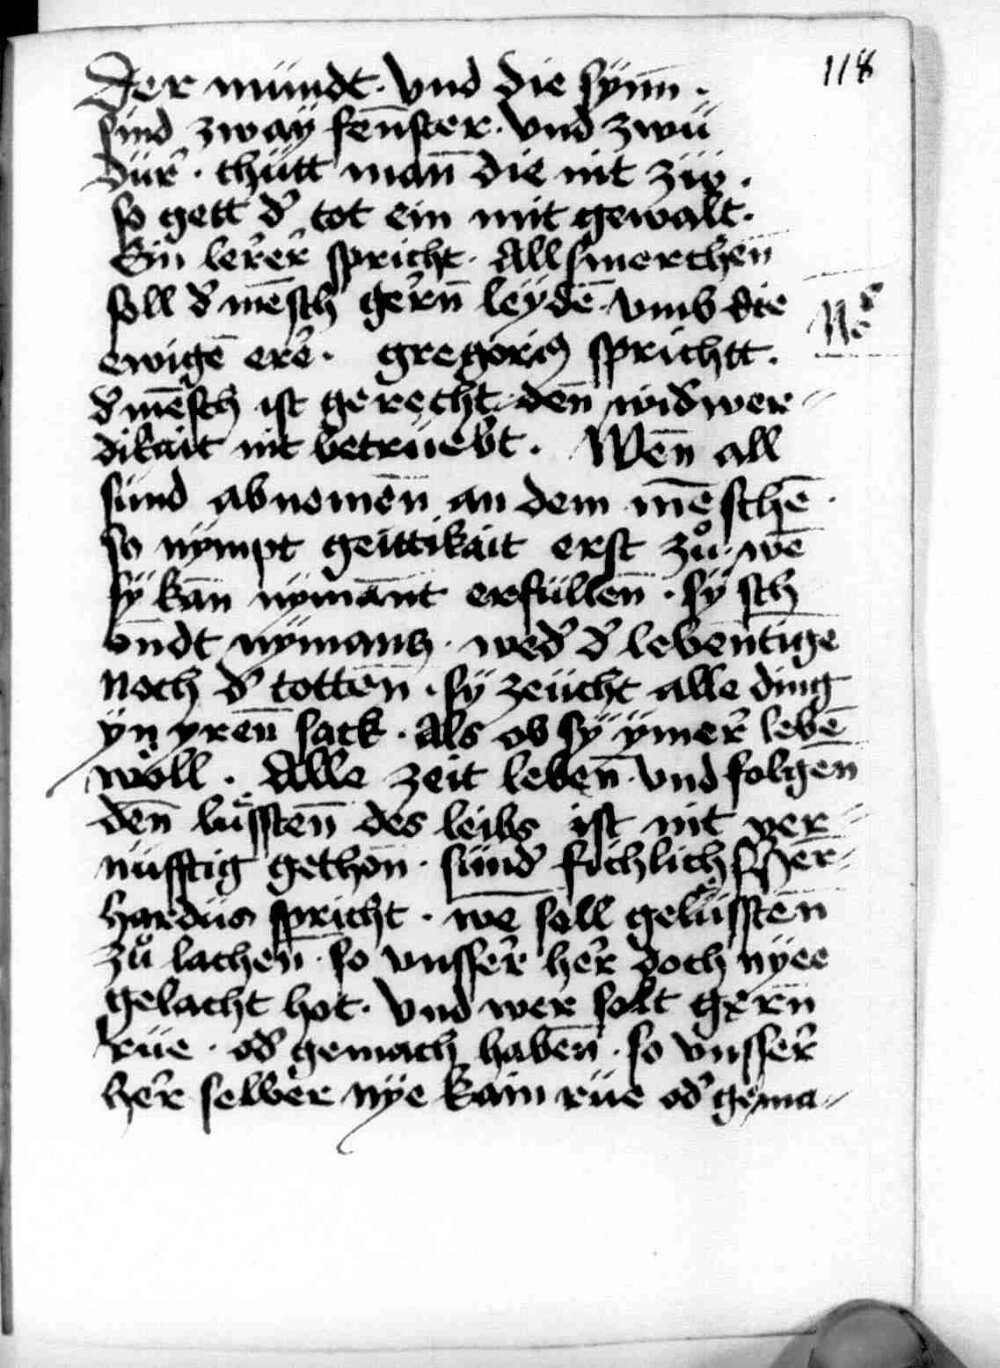 118
Der mündt · Vnd die sÿnn ·
sind zwaÿ fenn̄ster · Vnd zwü
dür̄ · thütt man̄ die nit zü ·
so gett d' tot ein mit gewalt ·
Ein lerer spricht · All smerchen̄
soll d' mēsch gern̄ leÿdē · vmb die
ewigē ere · gregorius sprichtt ·
d' mēsch ist gerecht · den̄ wid'wer〃
dikait nit betrüebt · Wen̄ all
sünd abnemen̄ an dem mēschē ·
so nÿmpt geittikait erst zů · wē
sÿ kan̄ nÿmānt erfüllen̄ · sÿ sch
ōndt nÿmants · wed' d' lebentigē
noch d' totten̄ · sÿ zeücht alle ding
ÿn ÿren̄ sack · Als ob sÿ ÿmer lebē
wöll · Alle zeit leben̄ · Vnd folgen̄
den̄ lüssten̄ des leibs ist nit ver〃
nüfftig gethon̄ · sünd'
hardus spricht · wē soll gelüssten̄
zů lachen̄ · so vnsser her doch nÿee
gelacht hot · Vnd wer solt gern̄
rüe · od' gemach haben̄ · so vnsser
her selber nÿe kain rüe od' gema〃